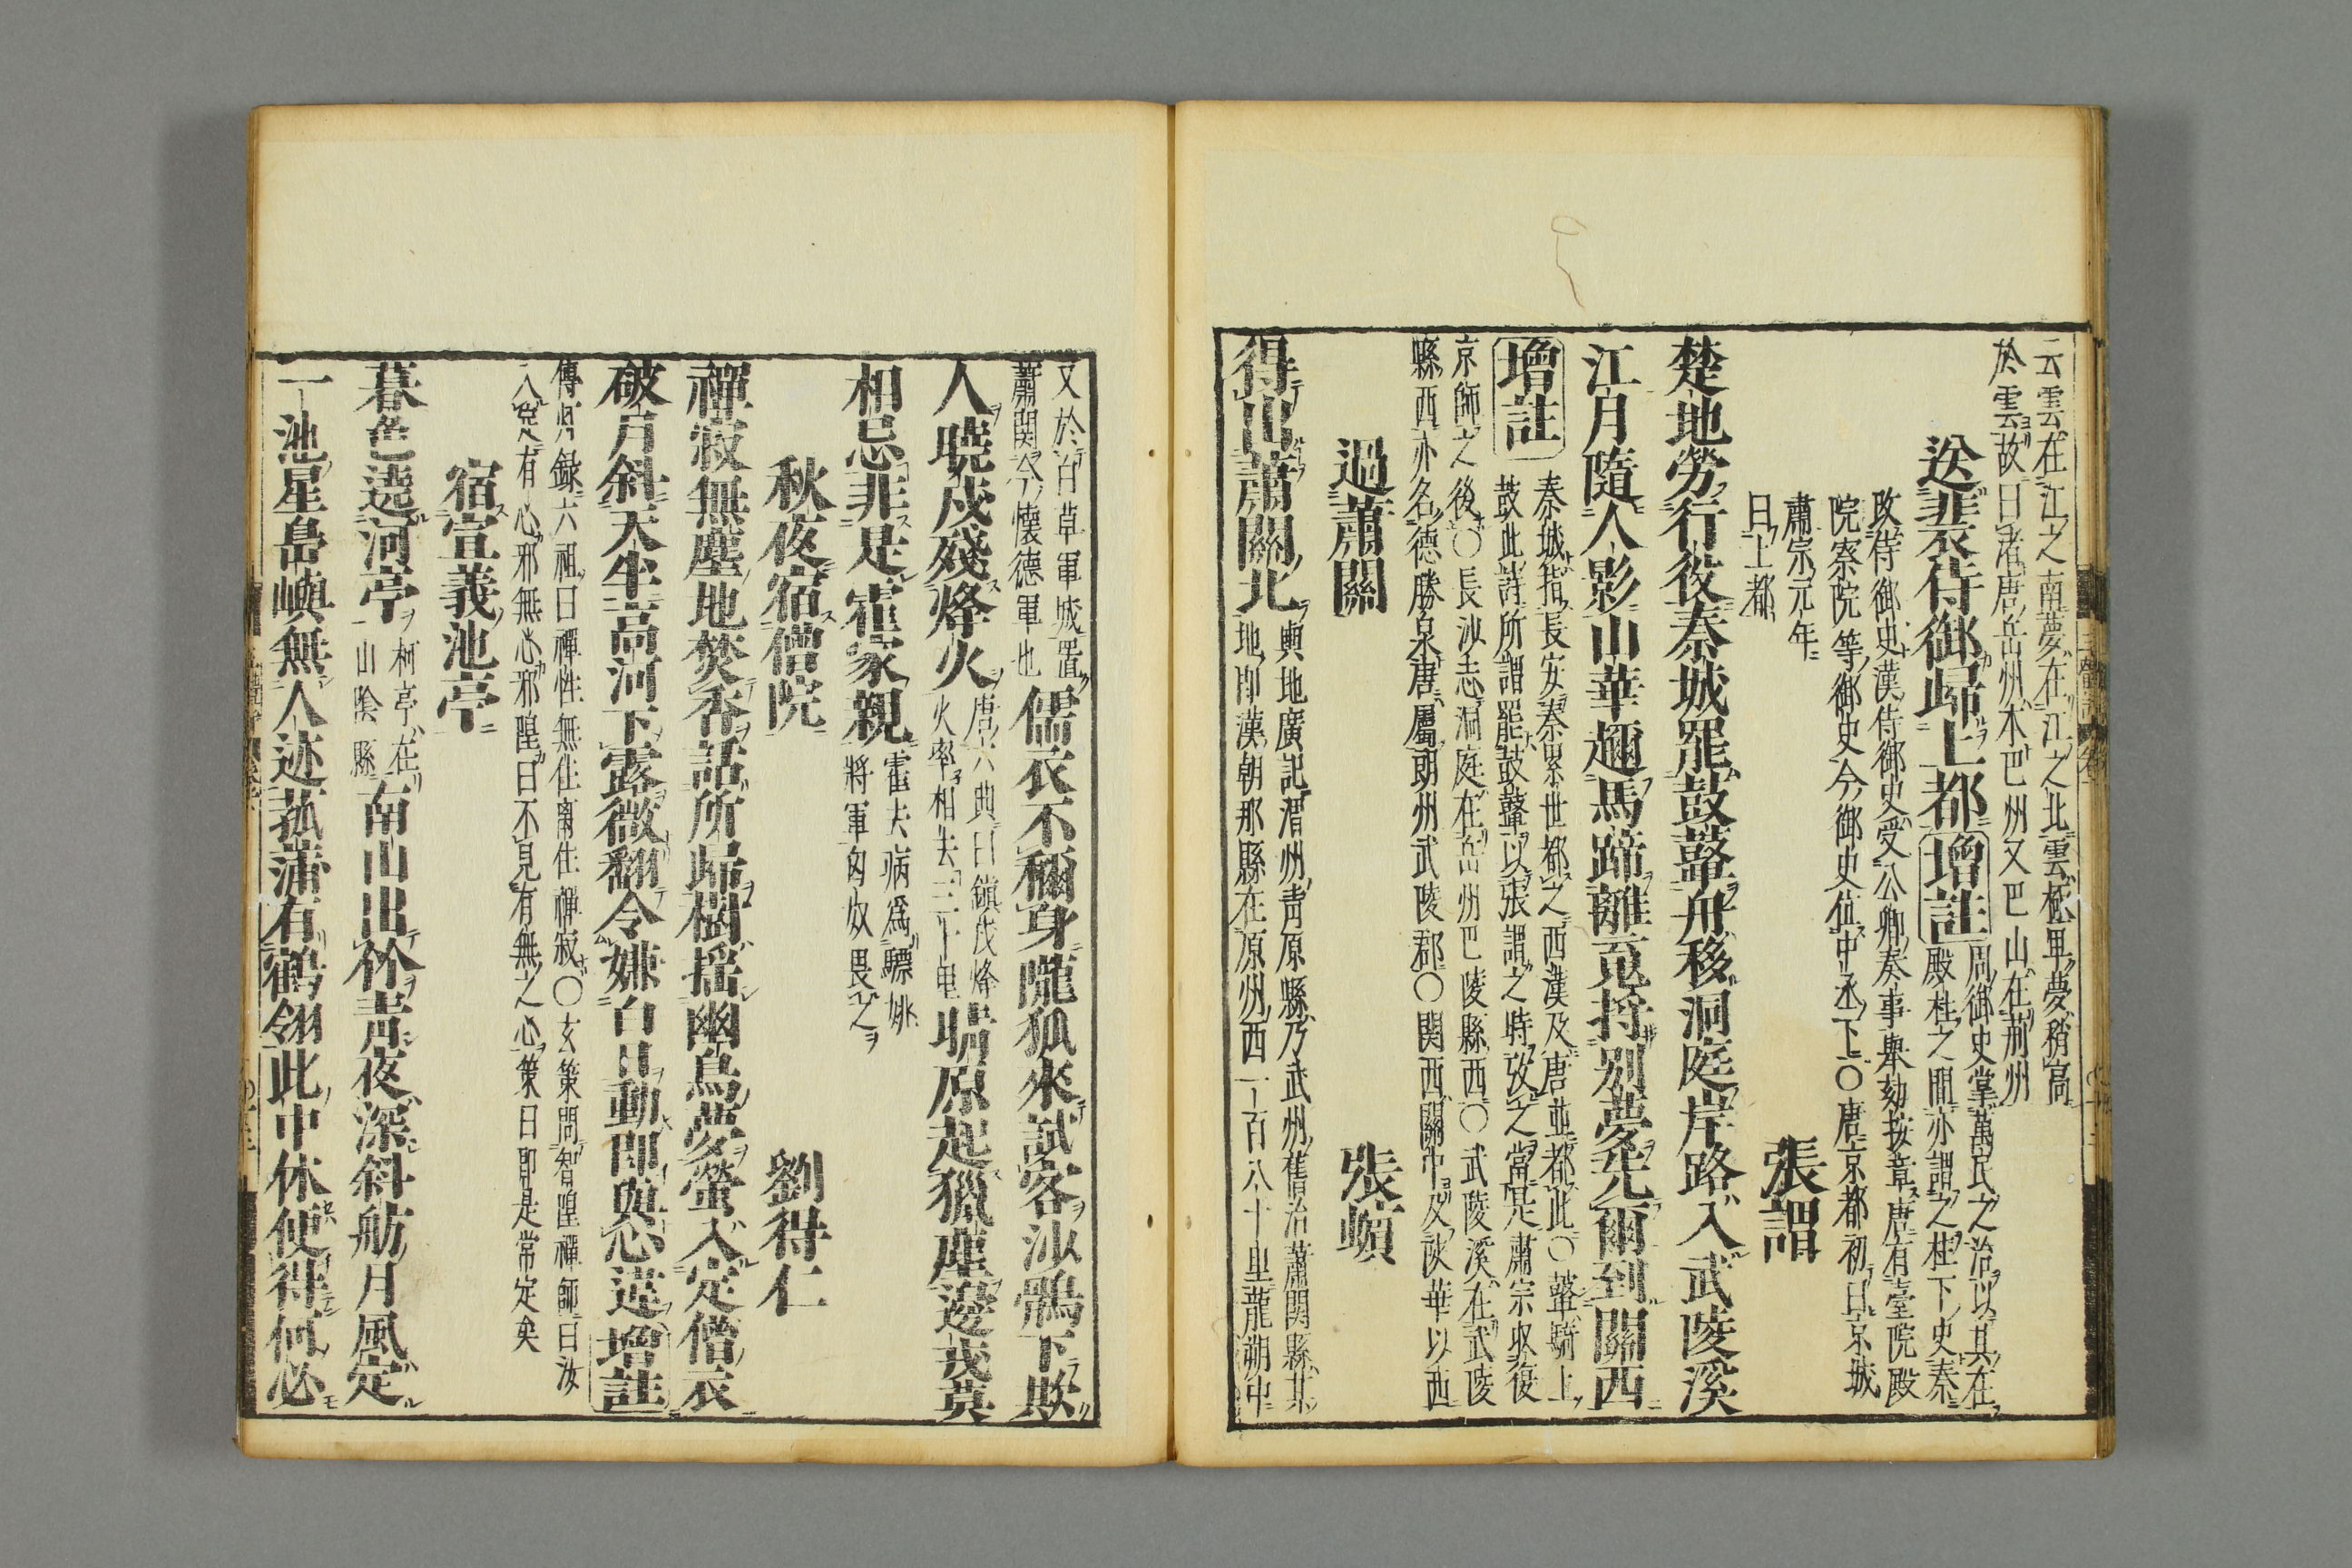 云雲在江之南夢在江之北雲極卑夢稍高
於雲故曰渚唐岳州本巴州又巴山在荊州
送裴侍御歸上都 增註 周御史掌萬民之治以其在
殿柱之間亦謂之柱下史秦
改侍御史漢侍御史受公卿奏事舉劾按章唐有臺院殿
院察院等御史今御史位中丞下○唐京都初曰京城
肅宗元年
曰上都
張謂
楚地勞行役秦城罷鼓鼙舟移洞庭岸路入武陵溪
江月隨人影山華趂馬蹄離䰟將別夢先爾到關西
增註 秦城指長安秦累世都之西漢及唐並都此○鼙騎上
鼓此詩所謂罷鼓鼙以張謂之時攷之當是肅宗收復
京師之後○長沙志洞庭在岳州巴陵縣西○武陵溪在武陵
縣西亦名德勝泉唐屬朗州武陵郡○関西關中及陜華以西
過蕭關 張蠙
得出蕭關北 輿地廣記渭州青原縣乃武州舊治蕭関縣其
地即漢朝那縣在原州西一百八十里龍朔中
又於白草軍城置
蕭関今懷德軍也
儒衣不稱身隴狐來試客沙鶻下欺
人曉戍殘烽火 唐六典曰鎮戍烽
火率相去三十里
晴原起獵塵邊戎莫
相忌非是霍家親 霍去病爲驃姚
將軍匈奴畏之
秋夜宿僧院 劉得仁
禪寂無塵地焚香話所歸樹搖幽鳥夢螢入定僧衣
破月斜天半高河下露微翻令嫌白日動即與心違 增註
傳灯録六祖曰禪性無住离住禪寂○玄策問智隍禪師曰汝
入定有心邪無心邪隍曰不見有無之心策曰即是常定矣
宿宣義池亭
暮色遶柯亭 柯亭在
山陰縣
南山出竹青夜深斜舫月風定
一池星島嶼無人迹菰蒲有鶴翎此中休便得何必